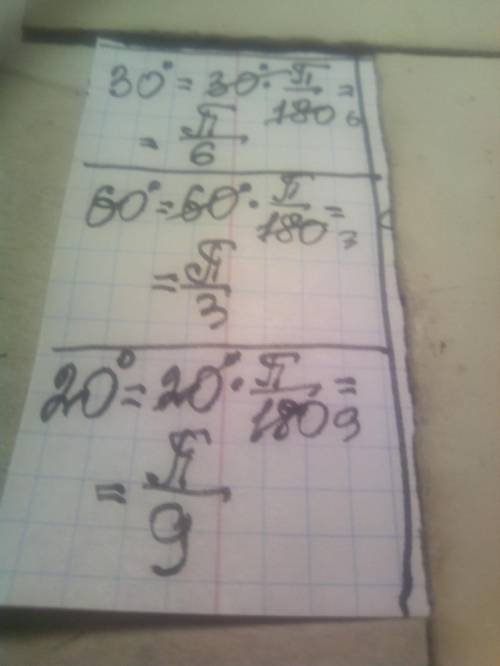 30° = 30° · π/180 6 =
= π/6
60° = 60° · π/180 3 =
= π/3
20° = 20° · π/180 9 =
= π/9